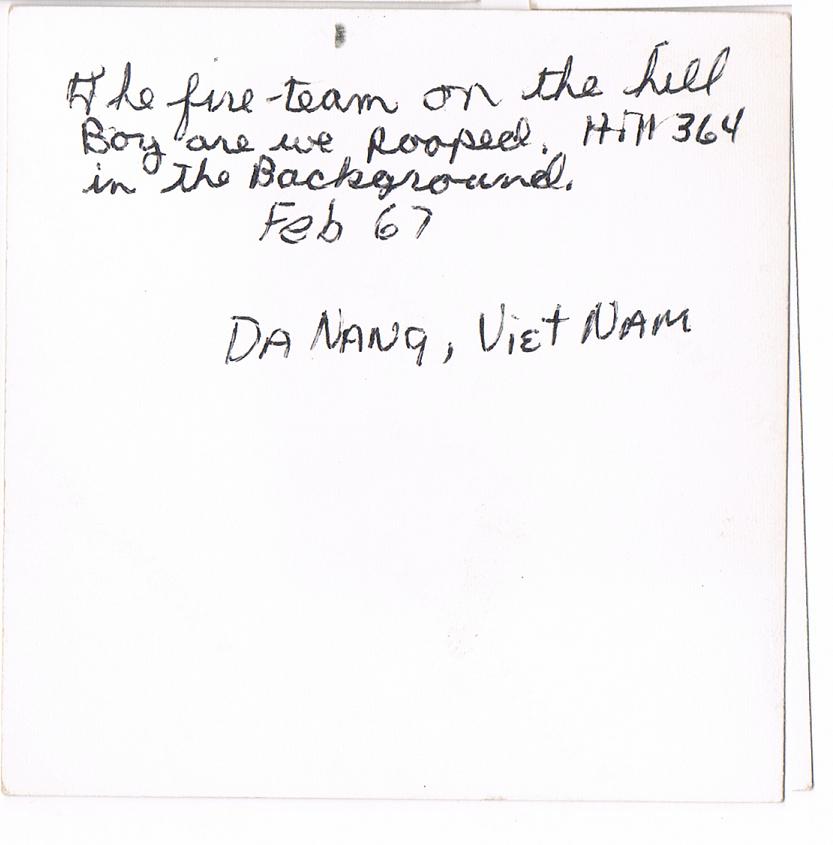 The fire-team on the hill
Boy are we Pooped. Hill 364
in the Background.
Feb 67
DA NANG, VIET NAM